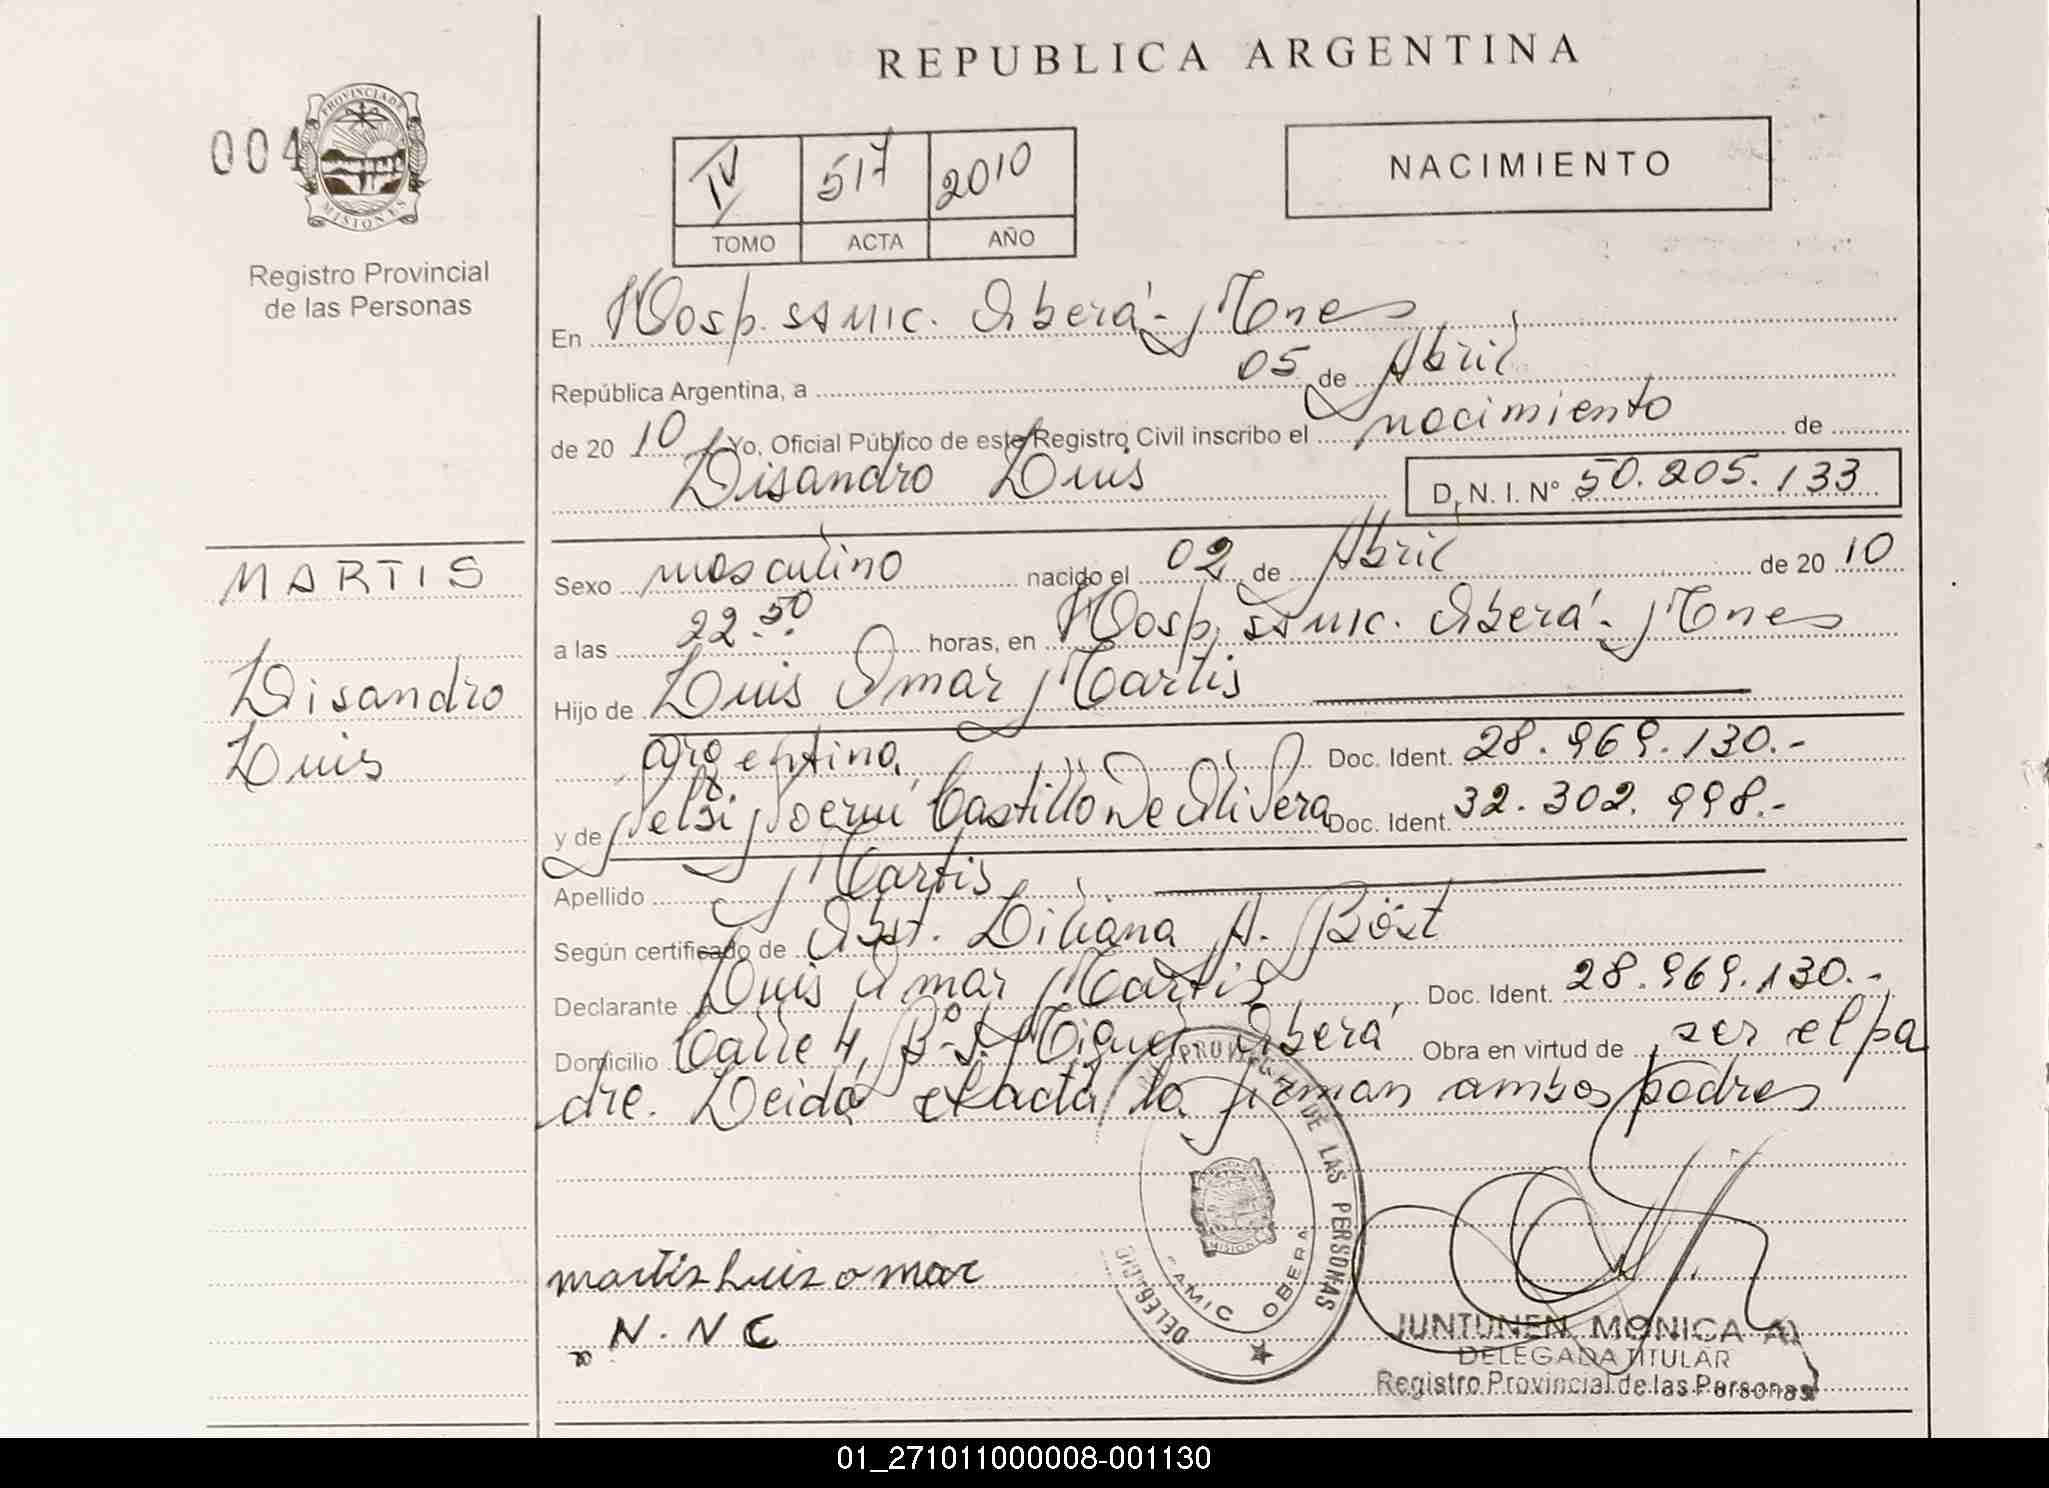 REPUBLICA ARGENTINA
004
PROVINCIA DE
MISIONES
Registro Provincial
de las Personas
IV 517 2010
TOMO ACTA AÑO
NACIMIENTO
En Hosp. SAMIC. Oberá - Mnes
República Argentina, a 05 de Abril
de 2010 Yo, Oficial Público de este Registro Civil inscribo el nacimiento de
Lisandro Luis D. N. I. N° 50.205.133
MARTIS
Lisandro
Luis
Sexo masculino nacido el 02 de Abril de 2010
a las 22.50 horas, en Hosp. SAMIC. Oberá - Mnes
Hijo de Luis Omar Martis
argentino, Doc. Ident. 28.969.130.-
y de Noemí Castillo De Olivera Doc. Ident. 32.302.998.-
Apellido Martis
Según certificado de Obst. Liliana A. Böst
Declarante Luis Omar Martis, Doc. Ident. 28.969.130.-
Domicilio Calle 4, B° S. Miguel Oberá Obra en virtud de ser el pa
dre. Leida el acta la firman ambos padres
martis Luis omar
N. N C
DE LAS PERSONAS
SAMIC OBERA
MISIONES
JUNTUNEN MONICA A.
DELEGADA TITULAR
Registro Provincial de las Personas
01_271011000008-001130